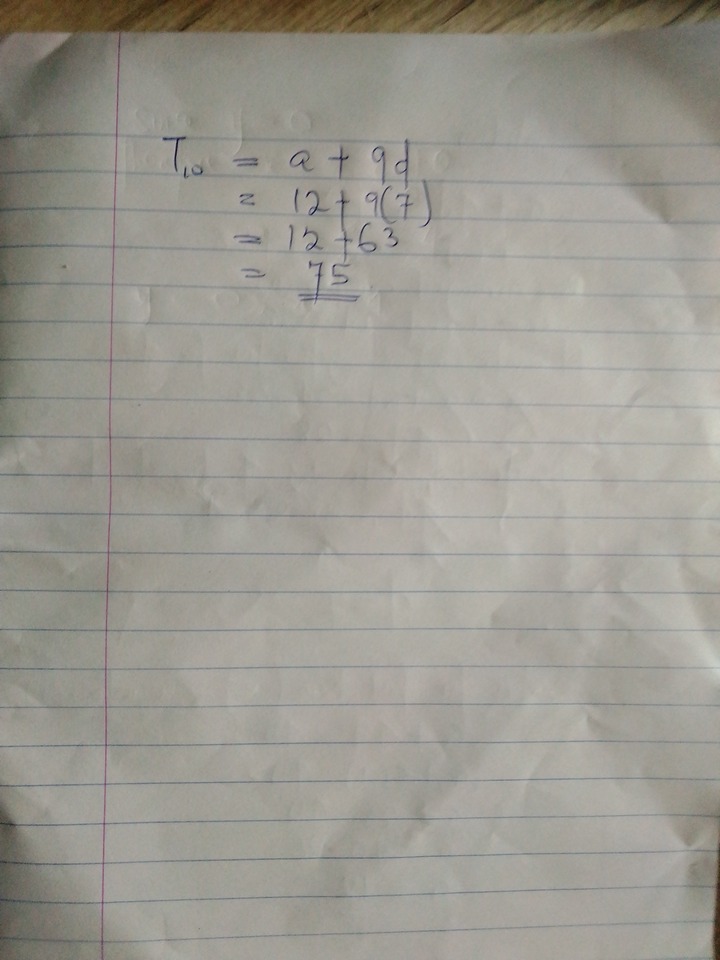 T₁₀ = a + 9d
= 12 + 9(7)
= 12 + 63
= 75